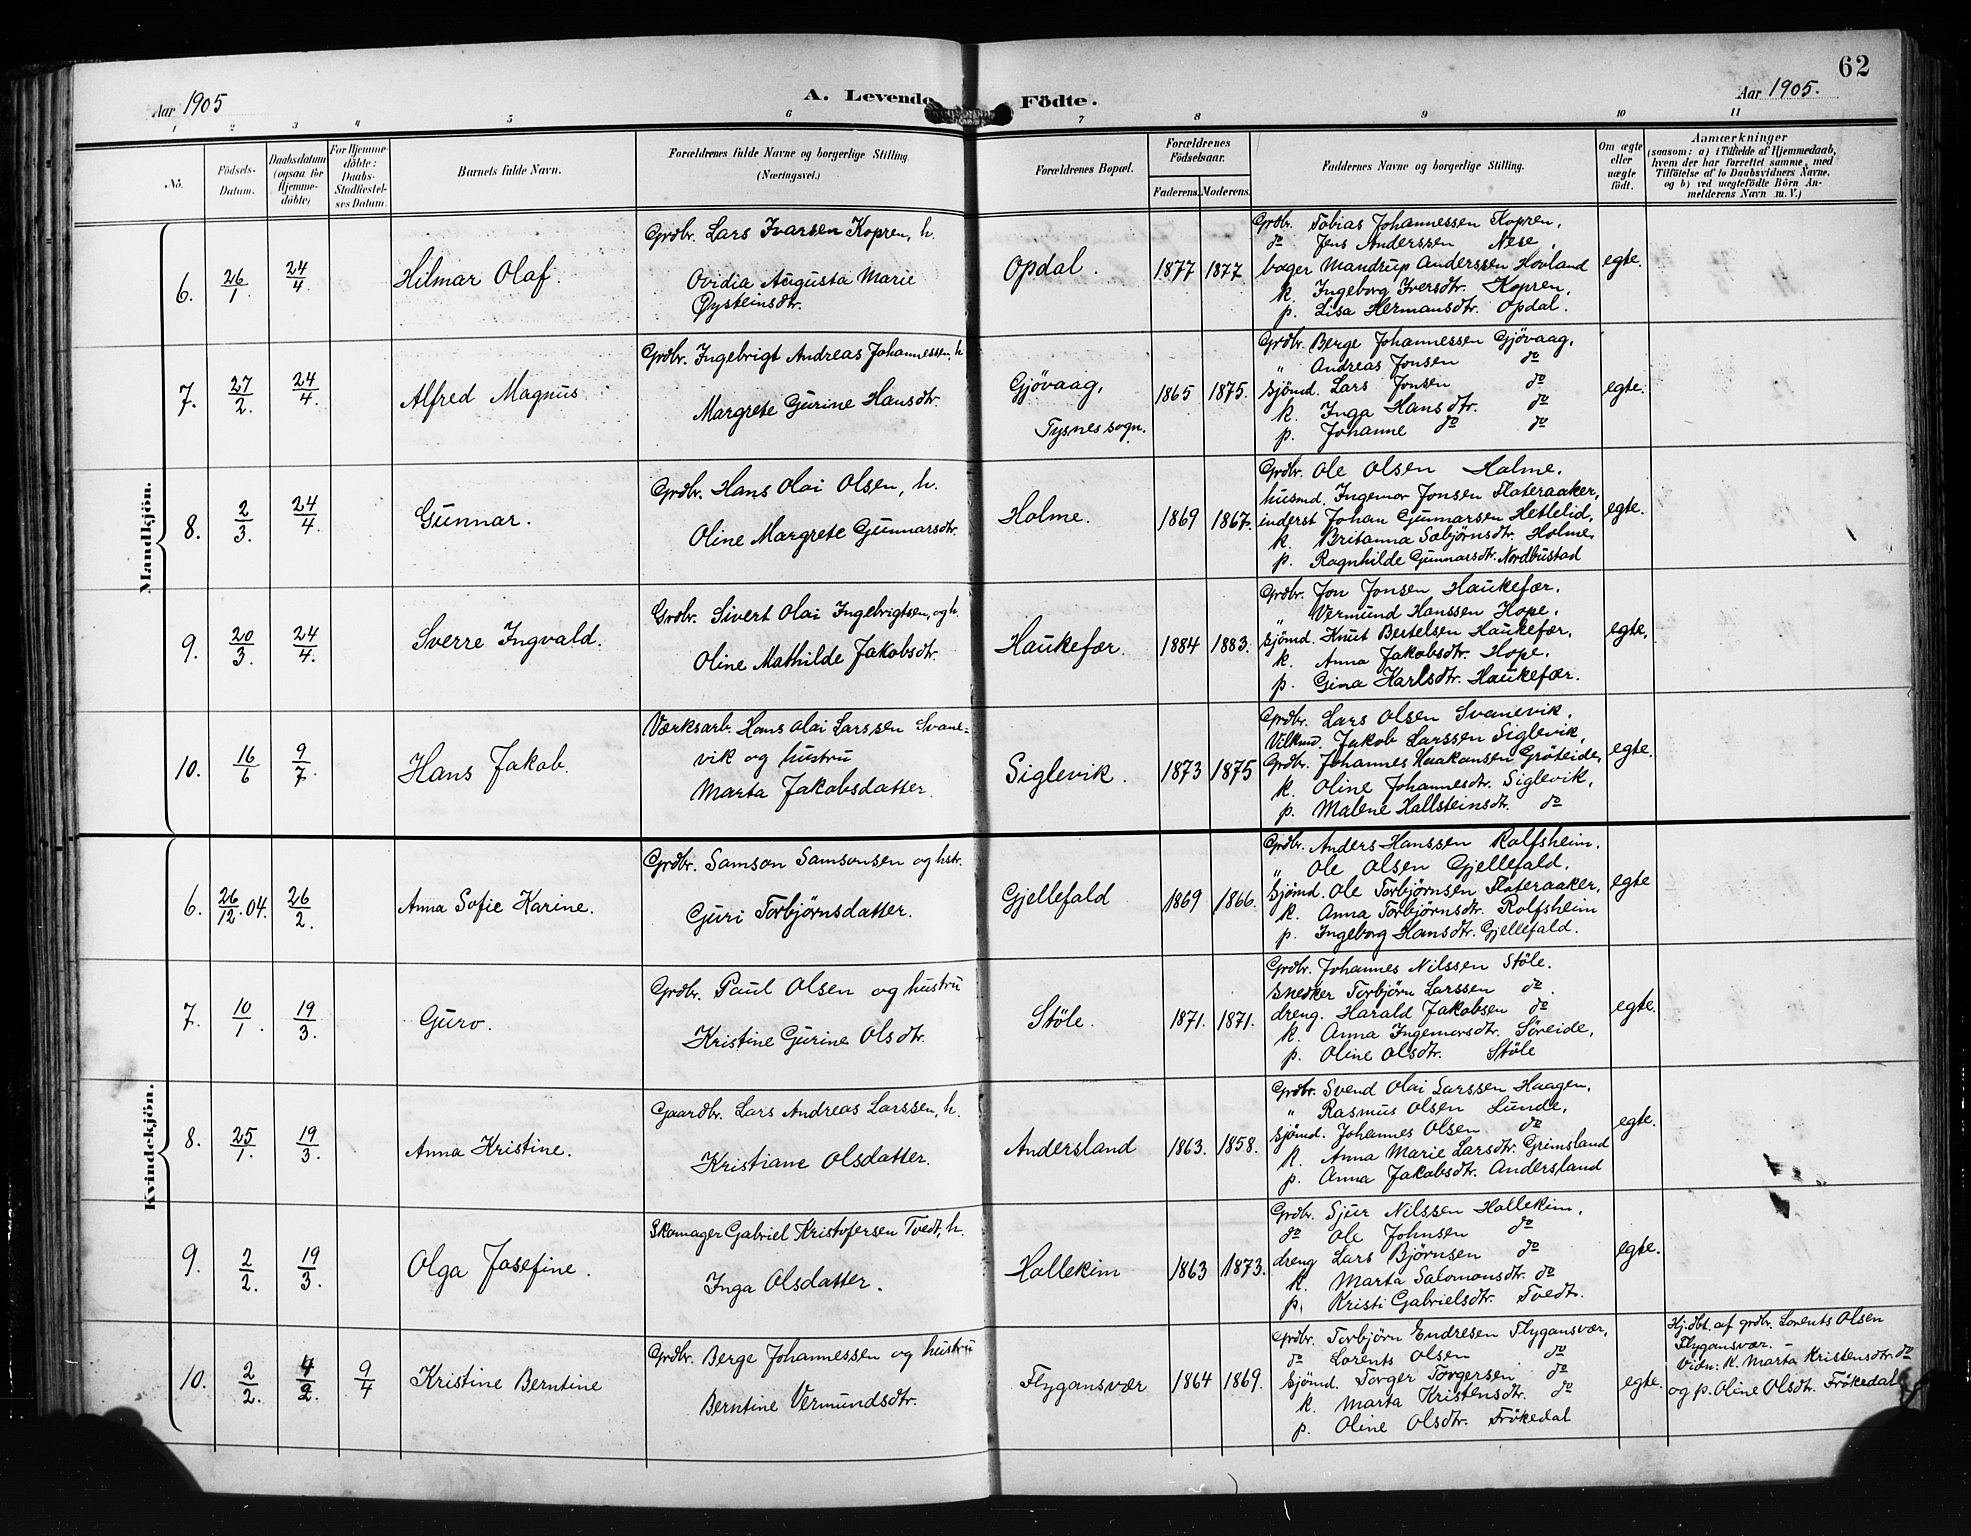 62
Aar 1905
A. Levende Födte.
Aar 1905.
1 2 3 4 5 6 7 8 9 10 11
No.
Födsels-Datum.
Daabsdatum (ogsaa for Hjemme-döbte)
For Hjemme-döbte: Daabs-Stadfæstel-ses Datum.
Barnets fulde Navn.
Forældrenes fulde Navne og borgerlige Stilling. (Næringsvei.)
Forældrenes Bopæl.
Forældrenes Födselsaar.
Faderens. Moderens.
Faddernes Navne og borgerlige Stilling.
Om ægte eller uægte födt.
Anmærkninger
(saasom: a) i Tilfælde af Hjemmedaab,
hvem der har forrettet samme, med
Tilföielse af to Daabsvidners Navne,
og b) ved uægtefödte Börn An-
melderens Navn m. V.)
Mandkjön.
6. 26/1. 24/4. Hilmar Olaf.
Grdbr. Lars Ivarsen Kopren, h.
Ovidia Augusta Marie
Øysteinsdtr.
Opdal. 1877 1877
Grdbr. Tobias Johannessen Kopren,
do Jens Anderssen Nese,
bager Mandrup Anderssen Hovland
k. Ingeborg Iversdtr. Kopren,
p. Lisa Hermansdtr. Opdal.
egte.
7. 27/2. 24/4. Alfred Magnus
Grdbr. Ingebrigt Andreas Johannessen, h
Margrete Gurine Hansdtr.
Gjövaag,
Tysnes sogn.
1865 1875.
Grdbr. Berge Johannessen Gjövaag,
" Andreas Jonsen do
sjömd. Lars Jonsen do
k. Inga Hansdtr. do
p. Johanne do do
egte.
8. 2/3. 24/4. Gunnar.
Grdbr. Hans Olai Olsen, h.
Oline Margrete Gunnarsdtr.
Holme. 1869 1867.
Grdbr. Ole Olsen Holme.
husmd. Ingemor Jonsen Flateraaker,
inderst Johan Gunnarsen Hetlelid,
k. Britanna Sæbjørnsdtr. Holme,
p. Ragnhilde Gunnarsdtr. Nordbustad
egte.
9. 20/3. 24/4. Sverre Ingvald.
Grdbr. Sivert Olai Ingebrigtsen, og h.
Oline Mathilde Jakobsdtr.
Haukefær. 1884 1883.
Grdbr. Jon Jonsen Haukefær.
" Vermund Hanssen Hope.
sjömd. Knut Bertelsen Haukefær.
k. Anna Jakobsdtr. Hope.
p. Gina Karlsdtr. Haukefær.
egte.
10. 16/6 9/7. Hans Jakob.
Værksarb. Hans Olai Larssen Svane-
vik og hustru
Marta Jakobsdatter.
Siglevik. 1873 1875
Grdbr. Lars Olsen Svanevik.
Vilkmd. Jakob Larssen Siglevik,
Grdbr. Johannes Haakonsen Gröteide,
k. Oline Johannesdtr. Siglevik,
p. Malene Hallsteinsdtr. do
egte.
Kvindekjön.
6. 26/12. 04. 26/2. Anna Sofie Karine.
Grdbr. Samson Samsonsen og hstr.
Guri Torbjørnsdatter.
Gjellefald 1869 1866.
Grdbr. Anders Hanssen Rolfsheim.
" Ole Olsen Gjellefald.
sjömd. Ole Torbjørnsen Flateraaker.
k. Anna Torbjørnsdtr. Rolfsheim
p. Ingeborg Hansdtr. Gjellefald.
egte
7. 10/1. 19/3. Guro.
Grdbr. Paul Olsen og hustru
Kristine Gurine Olsdtr.
Stöle. 1871. 1871.
Grdbr. Johannes Nilssen Stöle.
snedker Torbjörn Larssen do.
dreng. Harald Jakobsen do
k. Anna Ingemorsdtr. Söreide,
p. Oline Olsdtr. Stöle
egte.
8. 25/1. 19/3. Anna Kristine.
Gaardbr. Lars Andreas Larssen, h.
Kristiane Olsdatter.
Andersland 1863. 1858.
Grdbr. Svend Olai Larssen Haagen,
" Rasmus Olsen Lunde,
sjömd. Johannes Olsen do
k. Anna Marie Larsdtr. Grimsland
p. Anna Jakobsdtr. Andersland
egte.
9. 2/2. 19/3. Olga Josefine.
Skomager Gabriel Kristofersen Tvedt, h.
Inga Olsdatter.
Hollekim 1863 1873.
Grdbr. Sjur Nilssen Hollekim,
do Ole Johnsen do
dreng Lars Bjørnsen do
k. Marta Salomonsdtr. do
p. Kristi Gabrielsdtr. Tvedt.
egte.
10. 2/2. 4/2. 9/4 Kristine Berntine
Grdbr. Berge Johannessen og hustru
Berntine Vermundsdtr.
Flygansvær 1864 1869.
Grdbr. Torbjörn Endresen Flygansvær,
do Lorents Olsen do
sjömd. Torger Torgersen do
k. Marta Kristensdtr. do
p. Oline Olsdtr. Frökedal
egte.
Hj.dbt. af grdbr. Lorents Olsen
Flygansvær. –
Vidn: k. Marta Kristensdtr. do
og p. Oline Olsdtr. Frökedal